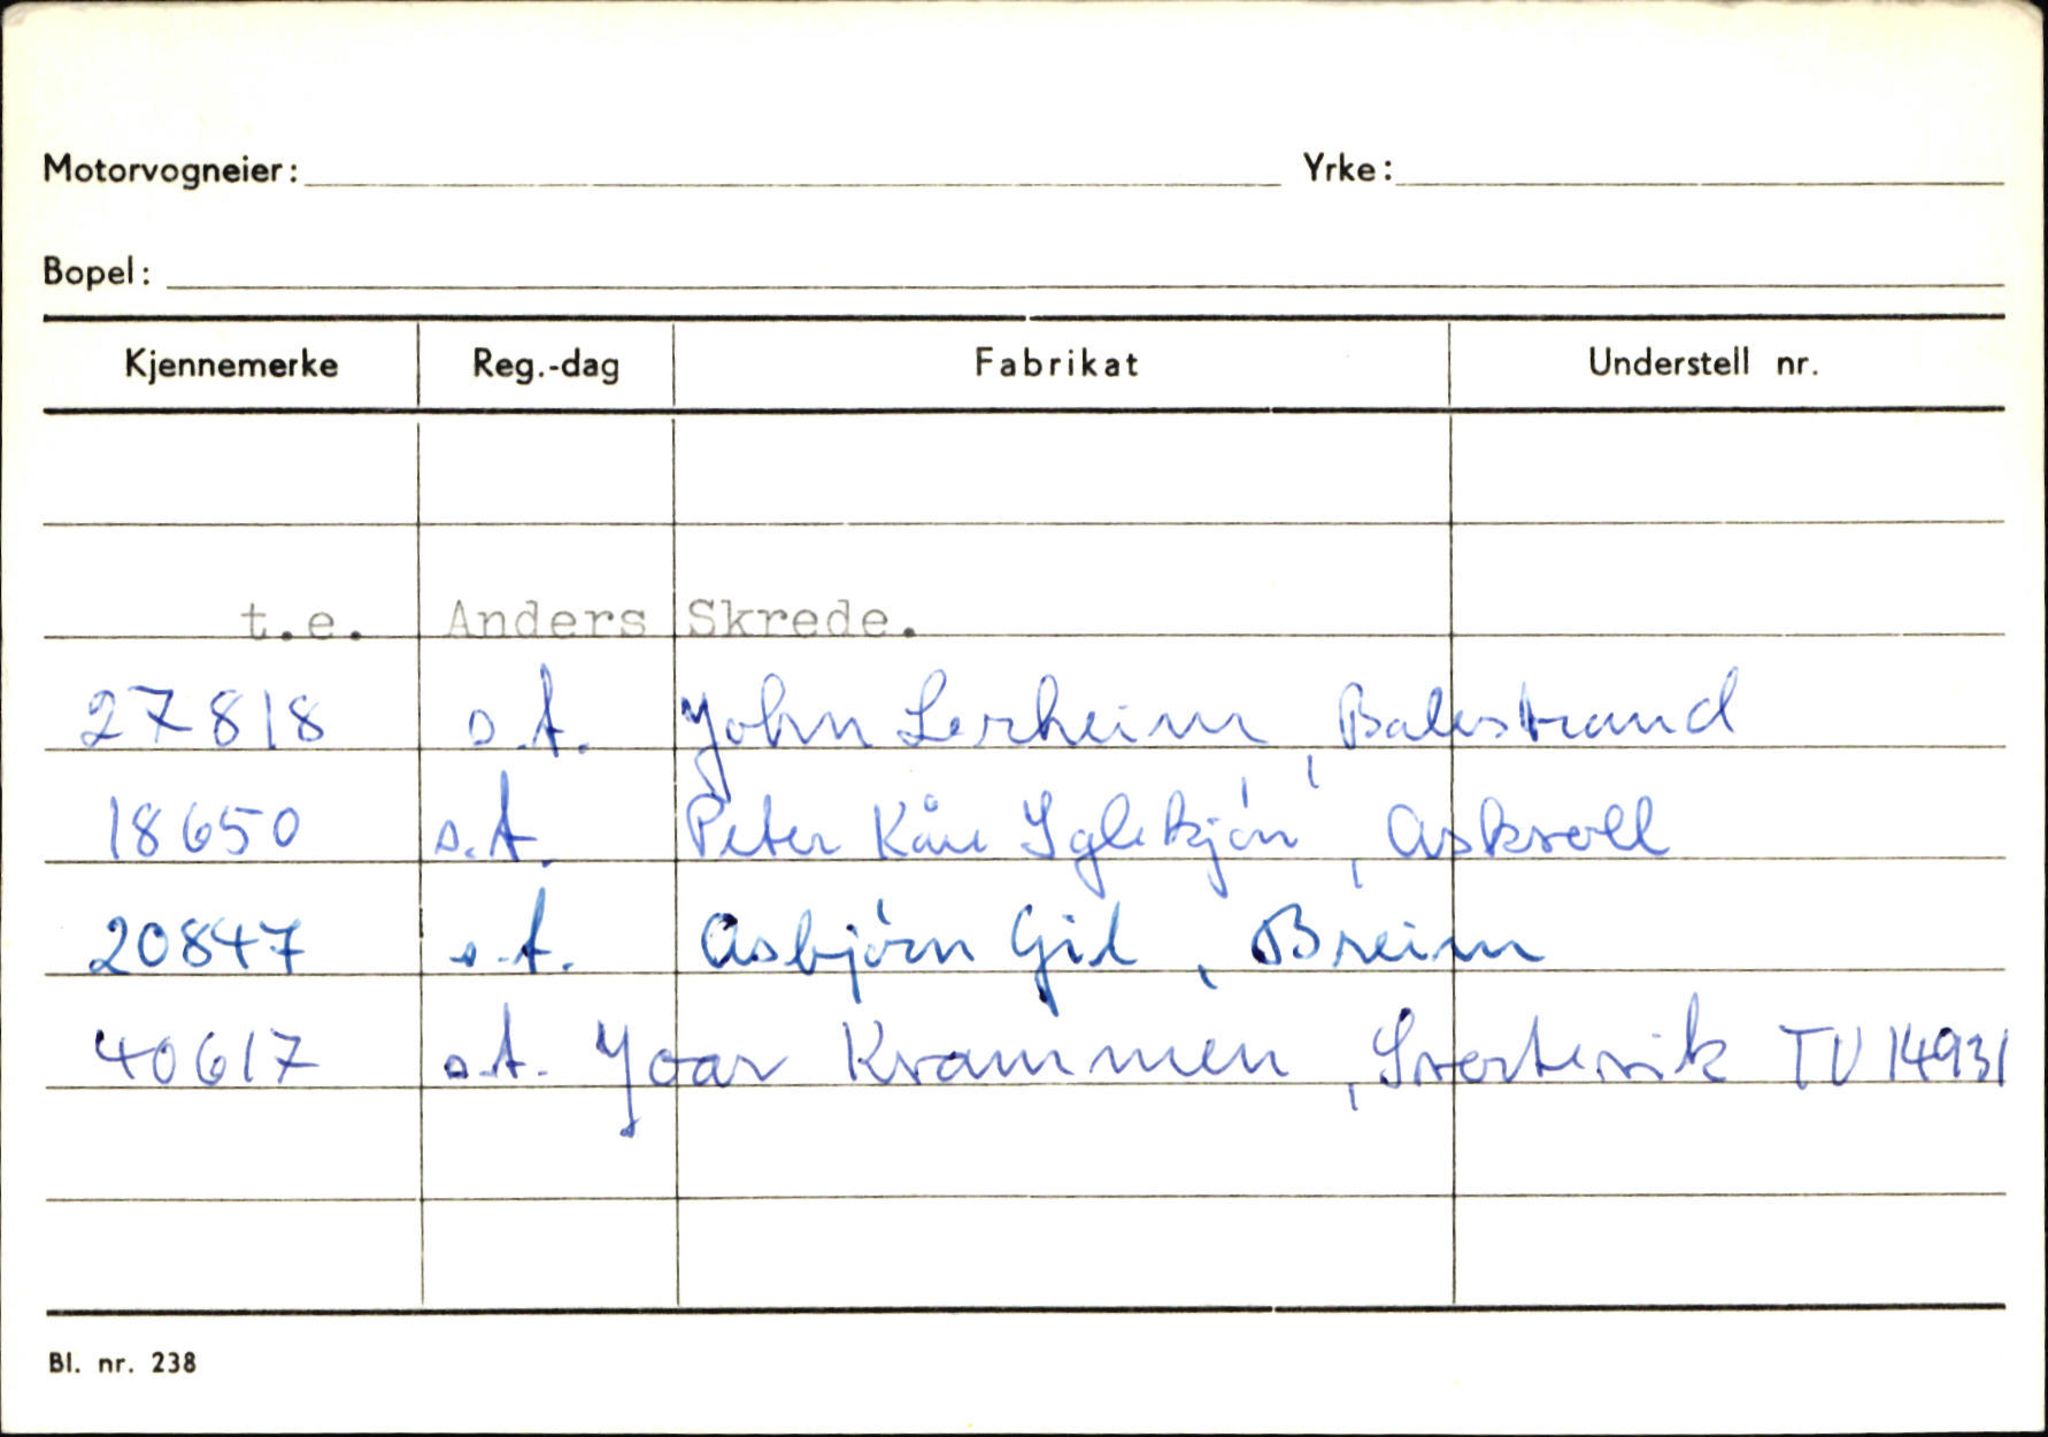 Motorvogneier: Yrke:
Bopel:
Kjennemerke Reg.-dag Fabrikat Understell nr.
t.e. Anders Skrede.
27818 s.t. John Lerheim, Balestrand
18650 s.t. Peter Kåre Iglekjøn, Askvoll
20847 s.t. Asbjørn Gil, Breim
40617 s.t. Joar Krammen, TU 14931
Bl. nr. 238